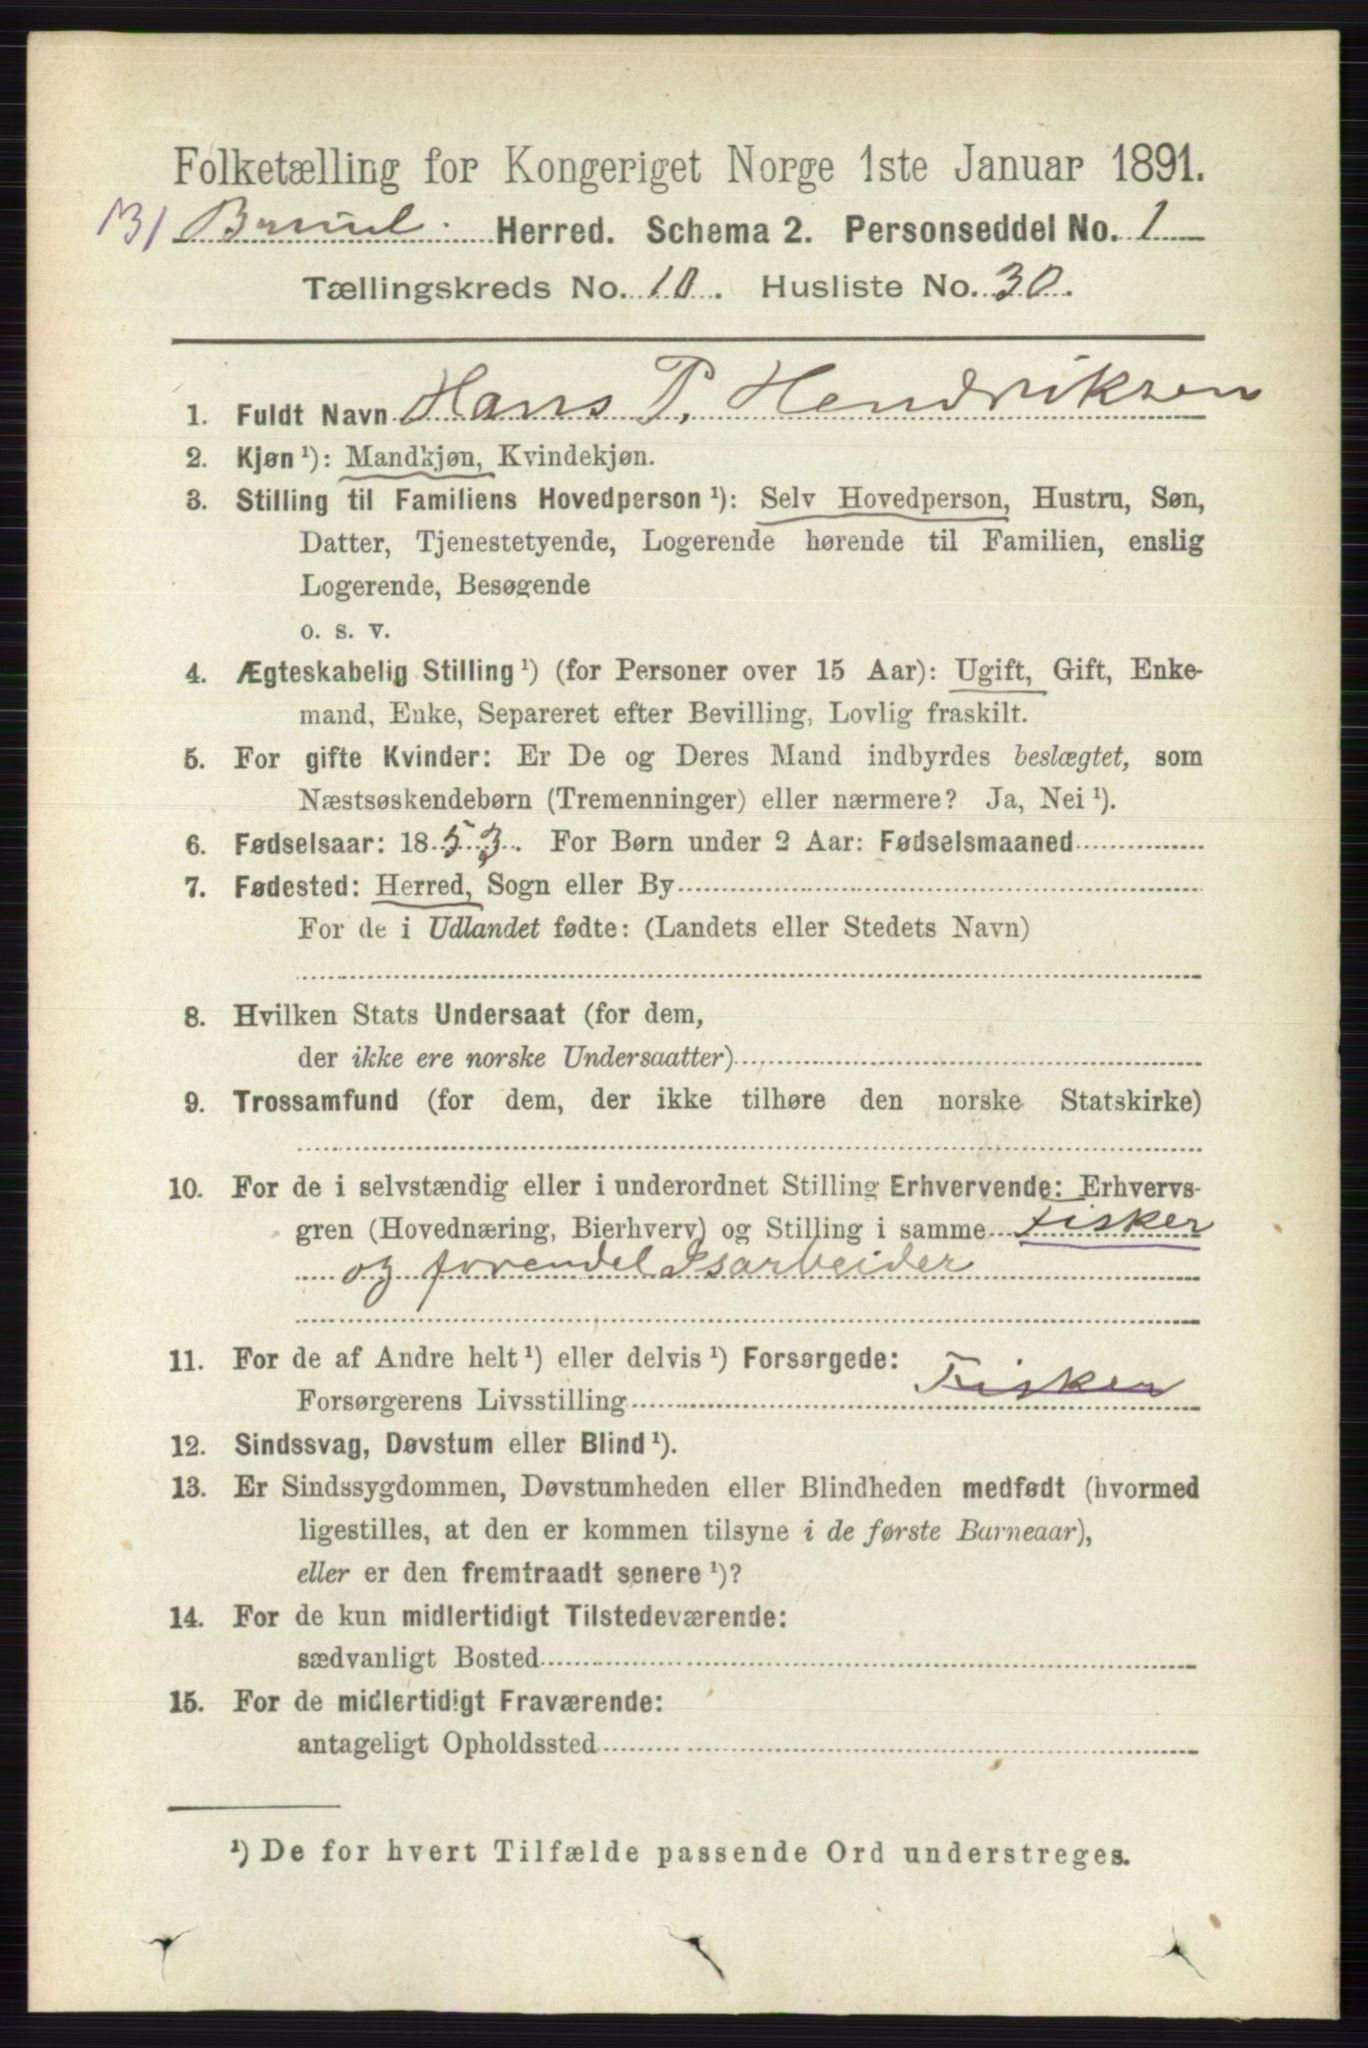 Folketælling for Kongeriget Norge 1ste Januar 1891.
131 Brunl. Herred. Schema 2. Personseddel No. 1
Tællingskreds No. 10. Husliste No. 30.
1. Fuldt Navn Hans P. Hendriksen
2. Kjøn ¹): Mandkjøn, Kvindekjøn.
3. Stilling til Familiens Hovedperson ¹): Selv Hovedperson, Hustru, Søn,
Datter, Tjenestetyende, Logerende hørende til Familien, enslig
Logerende, Besøgende
o. s. v.
4. Ægteskabelig Stilling ¹) (for Personer over 15 Aar): Ugift, Gift, Enke-
mand, Enke, Separeret efter Bevilling, Lovlig fraskilt.
5. For gifte Kvinder: Er De og Deres Mand indbyrdes beslægtet, som
Næstsøskendebørn (Tremenninger) eller nærmere? Ja, Nei ¹).
6. Fødselsaar: 1853. For Børn under 2 Aar: Fødselsmaaned
7. Fødested: Herred, Sogn eller By
For de i Udlandet fødte: (Landets eller Stedets Navn)
8. Hvilken Stats Undersaat (for dem,
der ikke ere norske Undersaatter)
9. Trossamfund (for dem, der ikke tilhøre den norske Statskirke)
10. For de i selvstændig eller i underordnet Stilling Erhvervende: Erhvervs-
gren (Hovednæring, Bierhverv) og Stilling i samme Fisker
og forendel Isarbeider
11. For de af Andre helt ¹) eller delvis ¹) Forsørgede:
Forsørgerens Livsstilling Fisker
12. Sindssvag, Døvstum eller Blind ¹).
13. Er Sindssygdommen, Døvstumheden eller Blindheden medfødt (hvormed
ligestilles, at den er kommen tilsyne i de første Barneaar),
eller er den fremtraadt senere ¹)?
14. For de kun midlertidigt Tilstedeværende:
sædvanligt Bosted
15. For de midlertidigt Fraværende:
antageligt Opholdssted
¹) De for hvert Tilfælde passende Ord understreges.